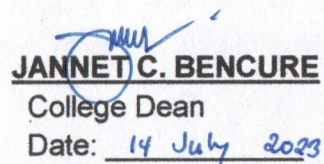 JANNET C. BENCURE
College Dean
Date: 14 July 2023